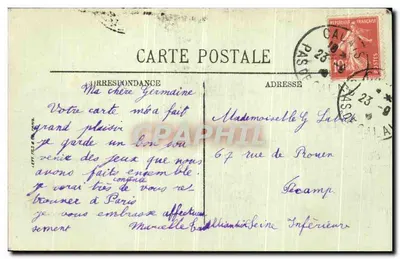 CARTE POSTALE
CORRESPONDANCE
ADRESSE
Ma chère Germaine
Votre carte m'a fait
grand plaisir
je garde un bon sou
venir des jeux que nous
avons faits ensemble.
je serai très contente de vous re
trouver à Paris
je vous embrasse affectueu
sement
Marcelle
Mademoiselle G
67 rue de Rouen
Fécamp
Seine Inférieure
CALAIS
PAS DE CALAIS
23